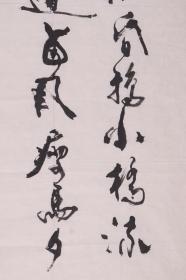 昏鴉小橋流
道西風瘦馬夕